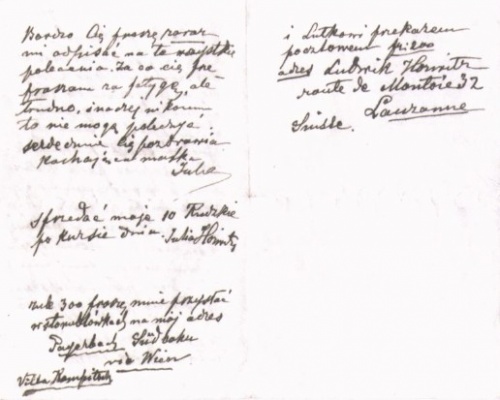 Bardzo Cię proszę zaraz
mi odpisać na te wszystkie
polecenia. Za co cię prze
praszam za fatygę, ale
trudno, inaczej nikomu
to nie mogę polecić.
serdecznie Cię pozdrawia
kochająca matka
Julia
sprzedać moje 10 Rudzkie
po kursie dnia. Julia Horwitz
300 proszę mnie przysłać
na mój adres
Payerbach Südbahn
via Wien
Villa
i Lutkowi przekazem
pocztowem
adres Ludwik Horwitz
route de Montoie 32
Lauzanne
Suisse.